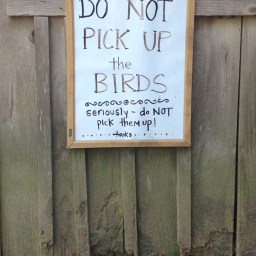 DO NOT
PICK UP
the
BIRDS
seriously - do NOT
pick them up!
thanks